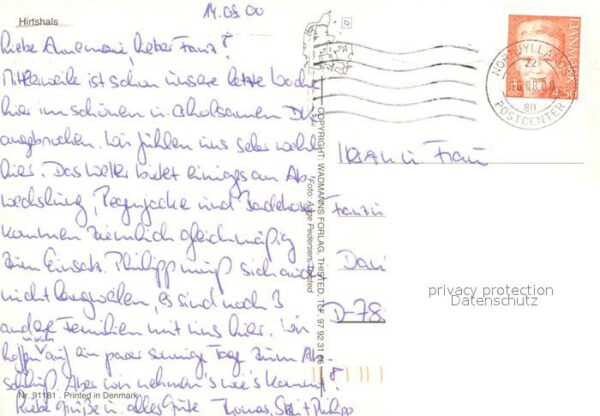 14.08.00
Hirtshals
Liebe Annemarie, lieber Franz!
Mittlerweile ist schon unsere letzte Woche
hier im schönen u. erholsamen DK
angebrochen. Wir fühlen uns sehr wohl
hier. Das Wetter bietet einiges an Ab-
wechslung, Regenjacke und Badehose
kommen ziemlich gleichmäßig
zum Einsatz. Philipp muß sich auch
nicht langweilen, es sind noch 3
andere Familien mit uns hier. Wir
hoffen noch auf ein paar sonnige Tage zum Ab-
schluß. Aber wir nehmen's wie's kommt.
Liebe Grüße u. alles Gute Thomas, + Philipp
Nr. 91181 . Printed in Denmark
COPYRIGHT: WADMANNS FORLAG, THISTED, TLF. 97 92 31
Foto: Aage Pedersen, Thisted
DANMARK
NORDJYLLANDS
22
08.00
80
POSTCENTER
Frau
D-78
privacy protection
Datenschutz